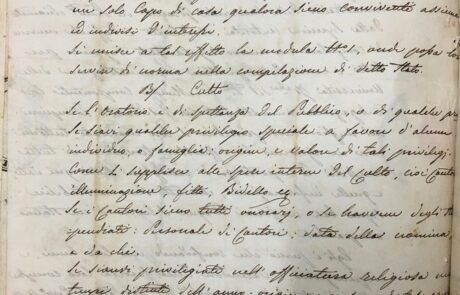 un solo Capo di casa qualora sieno conviventi assieme
ed indivisi d'interessi.
Si unisce a tal effetto la modula N° 1, onde possa loro
servir di norma nella compilazione di detto Stato.
B/ Culto
Se l'Oratorio è di spettanza del Pubblico, o di qualche
Se siavi qualche privilegio speciale a favore d'alcun
individuo, o famiglia: origine, e valore di tali privilegi.
Come si supplisce alle spese interne del Culto, cioè Cantori
illuminazione, fitto, Bidello
Se i Cantori sieno tutti onorarj, o se havvene degli
pendiati: personale di Cantori: data della nomina,
e da chi.
Se sianvi privilegiati nell'officiatura religiosa
distinti dell'anno: origine